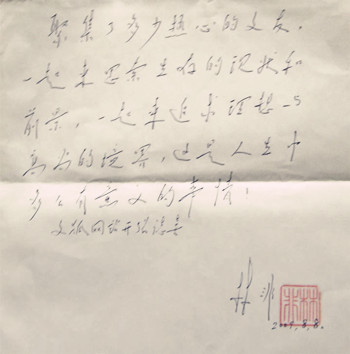 聚集了多少热心的文友,
一起来思索生存的现状和
前景,一起来追求理想与
高尚的境界,这是人生中
多么有意义的事情!
文狐网站开张志喜
林非
林非
8.8.